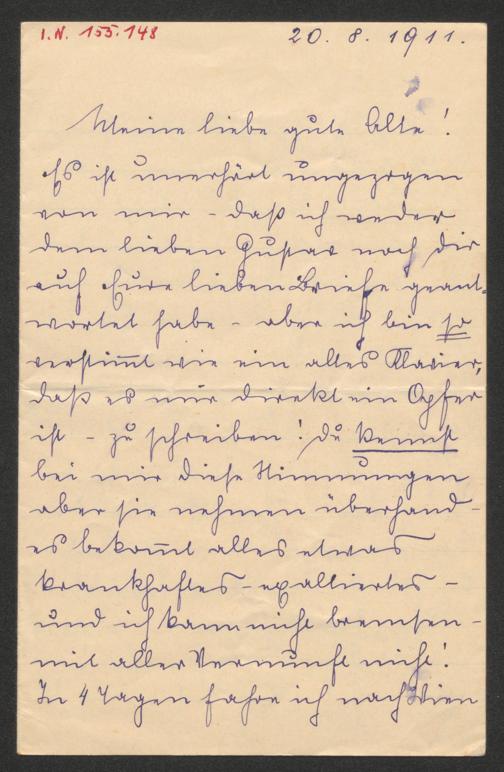 I.N. 155.148
20. 8. 1911.
Meine liebe gute Alte!
Es ist unerhört ungezogen
von mir - daß ich weder
dem lieben Gustav noch dir
auf Eure lieben Briefe geant-
wortet habe - aber ich bin so
verstim̅t wie ein altes Klavier,
daß es mir direkt ein Opfer
ist - zu schreiben! Du kennst
bei mir diese Stimmungen
aber sie nehmen überhand -
es bekom̅t alles etwas
krankhaftes - exaltiertes -
und ich kann nicht bremsen -
mit aller Vernunft nicht!
In 4 Tagen fahre ich nach Wien